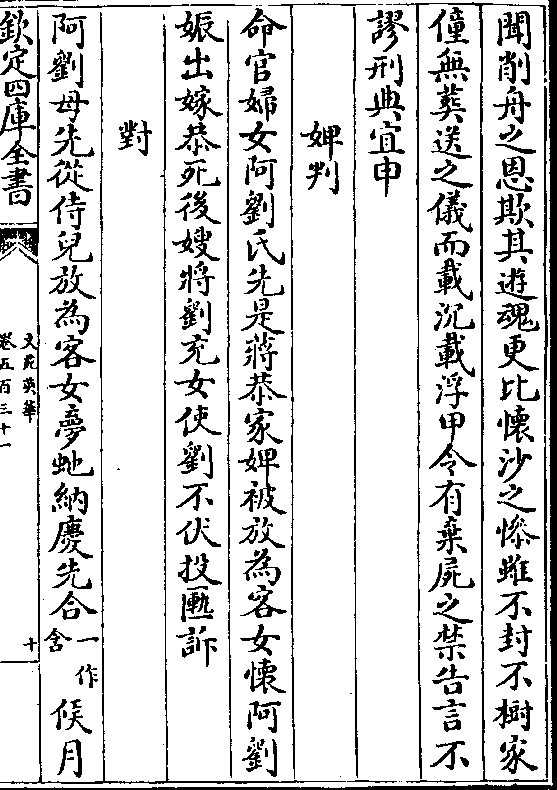 聞削舟之恩欺其遊魂更比懷沙之慘雖不封不樹家
僮無葬送之儀而載沉載浮甲令有棄屍之禁告言不
謬刑典宜申
婢判
命官婦女阿劉氏先是蔣恭家婢被放為客女懷阿劉
娠出嫁恭死後嫂將劉充女使劉不伏投匭訴
對
阿劉母先從侍兒放為客女夢虵納慶先合一作含候月
欽定四庫全書
文苑英華
卷五百三十一
十